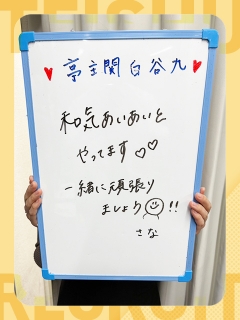 ♥亭主関白谷九♥
和気あいあいと
やってます♡♡
一緒に頑張り
ましょう☺!!
さな